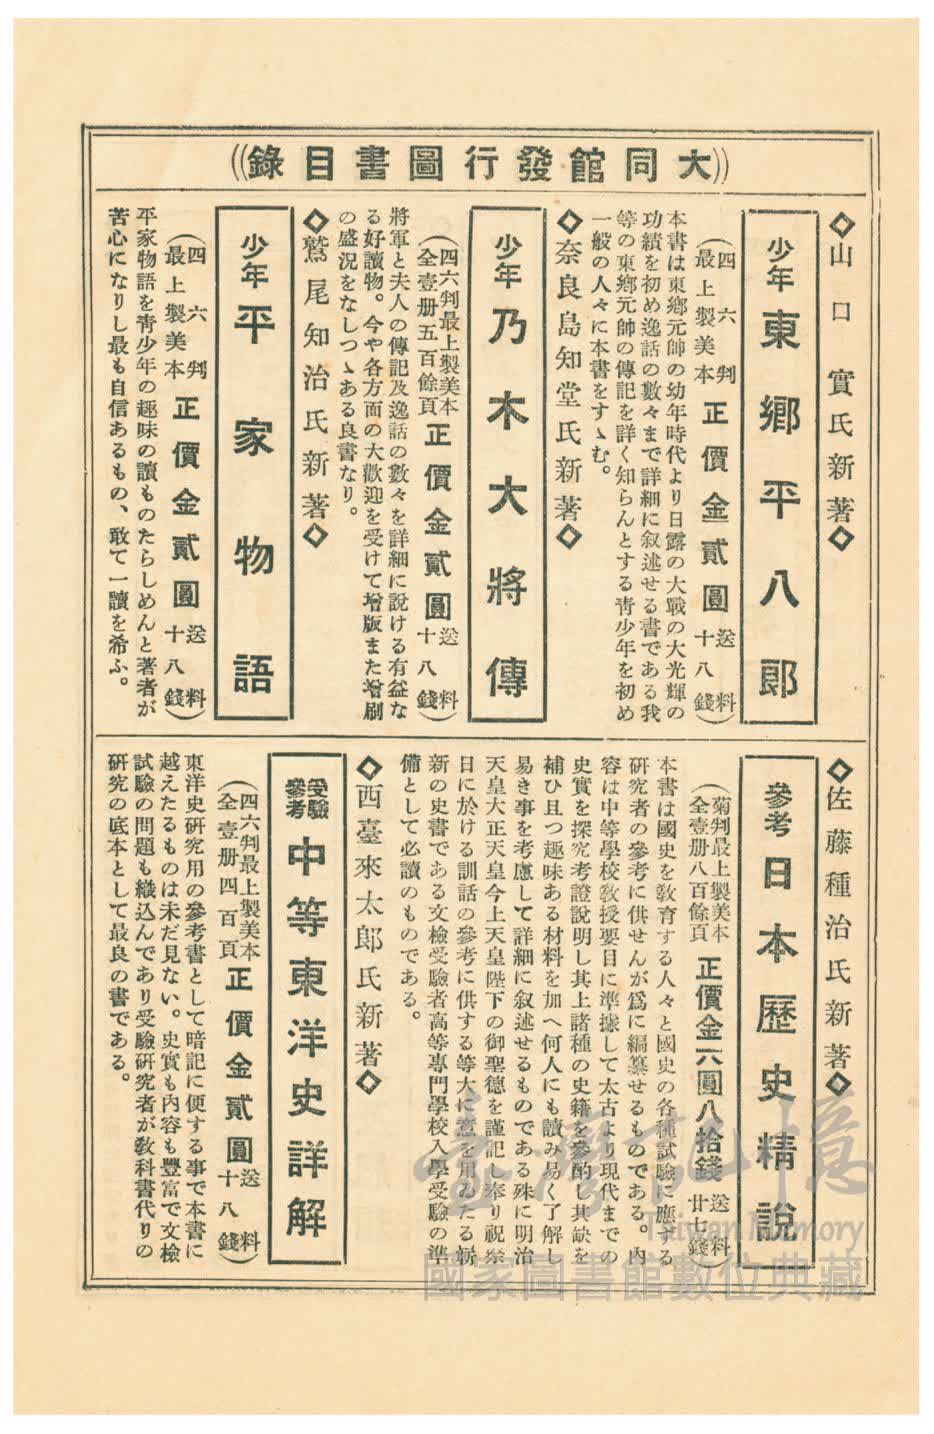 大同館發行圖書目錄
◇山口實氏新著◇
少年 東鄉平八郎
(四六判最上製美本 正價金貳圓 送料十八錢)
本書は東鄉元帥の幼年時代より日露の大戰の大光輝の
功績を初め逸話の數々まで詳細に叙述せる書である我
等の東鄉元帥の傳記を詳く知らんとする靑少年を初め
一般の人々に本書をすゝむ。
◇奈良島知堂氏新著◇
少年 乃木大將傳
(四六判最上製美本全壹册五百餘頁 正價金貳圓 送料十八錢)
將軍と夫人の傳記及逸話の數々を詳細に說ける有益な
る好讀物。今や各方面の大歡迎を受けて增版また增刷
の盛況をなしつゝある良書なり。
◇鷲尾知治氏新著◇
少年 平家物語
(四六判最上製美本 正價金貳圓 送料十八錢)
平家物語を靑少年の趣味の讀ものたらしめんと著者が
苦心になりし最も自信あるもの、敢て一讀を希ふ。
◇佐藤種治氏新著◇
參考 日本歷史精說
(菊判最上製美本全壹册八百餘頁 正價金六圓八拾錢 送料廿七錢)
本書は國史を敎育する人々と國史の各種試驗に應する
硏究者の參考に供せんが爲に編纂せるものである。內
容は中等學校敎授要目に準據して太古より現代までの
史實を探究考證說明し其上諸種の史籍を參酌し其缺を
補ひ且つ趣味ある材料を加へ何人にも讀み易く了解し
易き事を考慮して詳細に叙述せるものである殊に明治
天皇大正天皇今上天皇陛下の御聖德を謹記し奉り祝祭
日に於ける訓話の參考に供する等大に意を用ゐたる嶄
新の史書である文檢受驗者高等專門學校入學受驗の準
備として必讀のものである。
◇西臺來太郞氏新著◇
受驗參考 中等東洋史詳解
(四六判最上製美本全壹册四百頁 正價金貳圓 送料十八錢)
東洋史硏究用の參考書として暗記に便する事で本書に
越えたるものは未だ見ない。史實も內容も豐富で文檢
試驗の問題も織込んであり受驗硏究者が敎科書代りの
硏究の底本として最良の書である。
臺灣記憶
Taiwan Memory
國家圖書館數位典藏